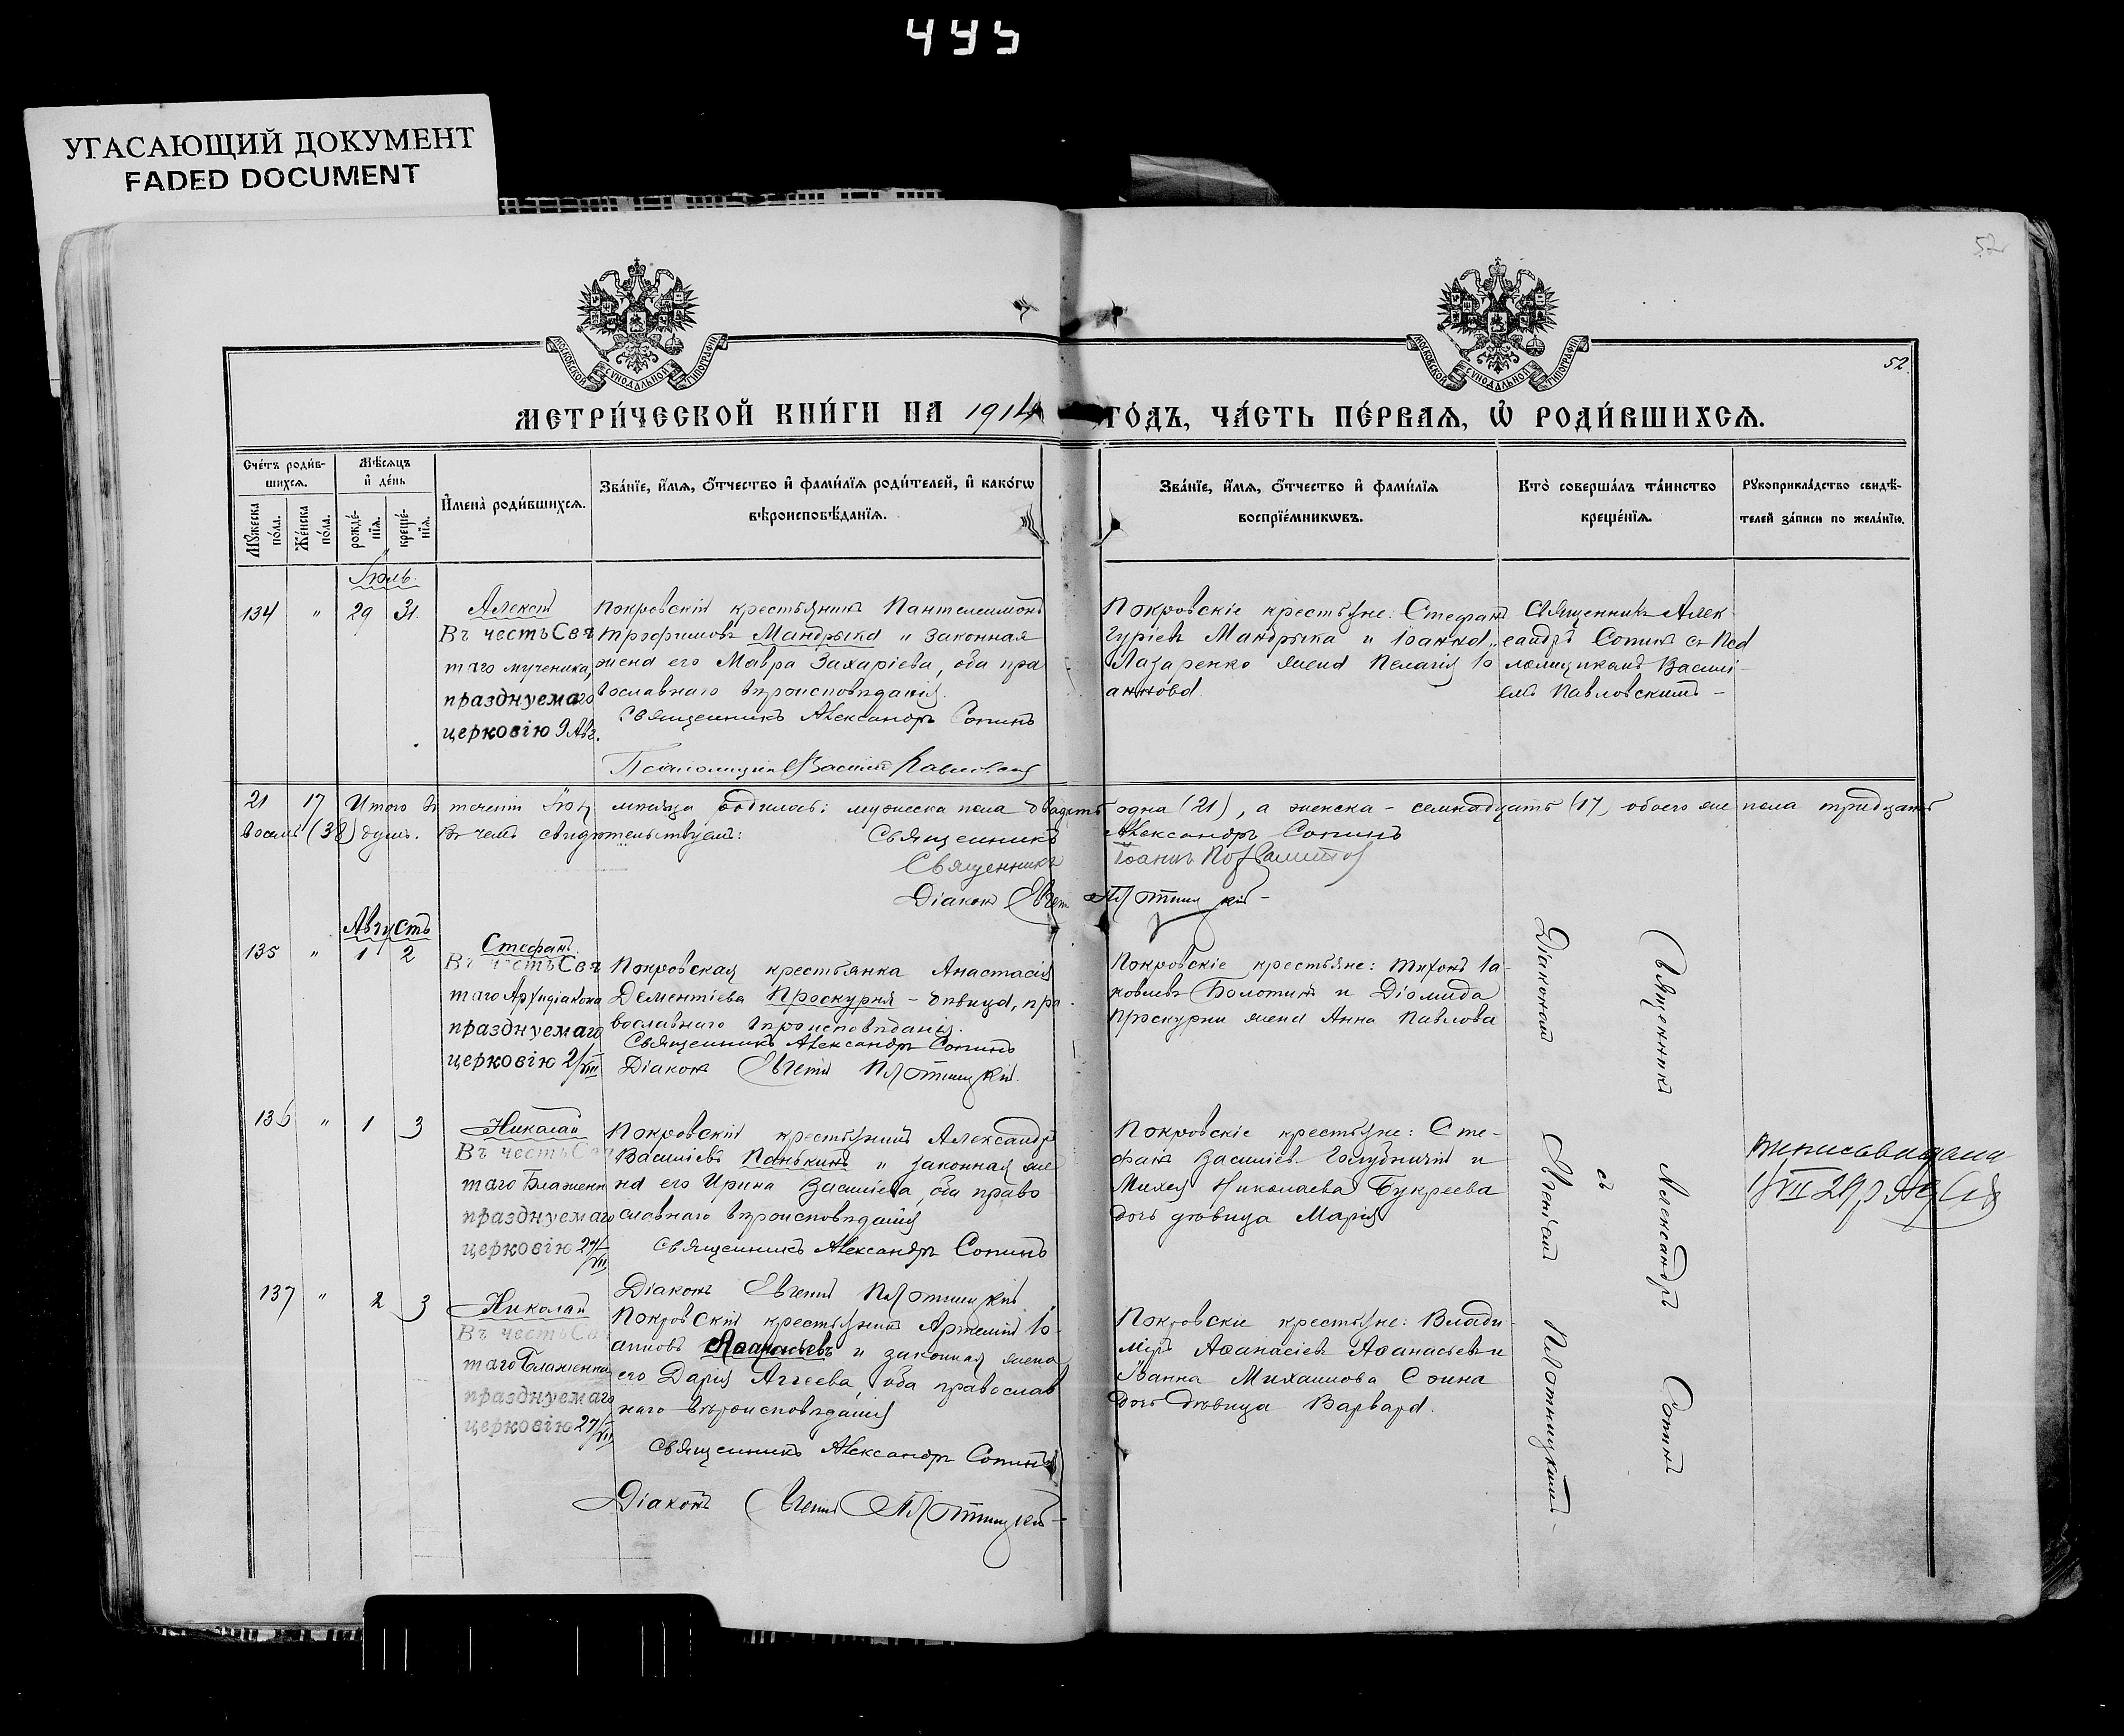 445
УГАСАЮЩИЙ ДОКУМЕНТ
FADED DOCUMENT
52
52.
МОСКОВСКОЙ СѴНОДАЛЬНОЙ ТИПОГРАФІИ
МОСКОВСКОЙ СѴНОДАЛЬНОЙ ТИПОГРАФІИ
МЕТРИ́ЧЕСКОЙ КНИ́ГИ НА 1914 ГО́ДЪ, ЧА́СТЬ ПЕ́РВАѦ, Ѡ РОДИ́ВШИХСѦ.
Сче́тъ роди́в-
шихсѧ.
Мꙋжеска по́ла.
Же́нска по́ла.
Мѣ́сѧцъ
и҆ де́нь
рожде́-
нїѧ.
креще́-
нїѧ.
И҆мена̀ роди́вшихсѧ.
Зва́нїе, и҆́мѧ, ѻ҆́тчество и҆ фами́лїѧ роди́телей, и҆ како́гѡ
вѣроисповѣ́данїѧ.
Зва́нїе, и҆́мѧ, ѻ҆́тчество и҆ фами́лїѧ
воспрїе́мникѡвъ.
Кто̀ соверша́лъ та́инство
креще́нїѧ.
Рꙋкоприкла́дство свидѣ́-
телей за́писи по жела́нїю.
Іюль.
134 " 29 31.
Алексій
Въ честь Свя
таго мученика,
празднуемаго
церковію 9 Авг.
Покровскій крестьянинъ Пантелеимонъ
Трофимовъ Мандрыка и законная
жена его Мавра Захаріева, оба пра
вославнаго вѣроисповѣданія.
Священникъ Александръ Сопинъ
Псаломщикъ Василій Павловскій
Покровскіе крестьяне: Стефанъ
Гуріевъ Мандрыка и Іоанна
Лазаренко жена Пелагія Іо
аннова
Священникъ Алек
сандръ Сопинъ съ Пса
ломщикомъ Василі-
емъ Павловскимъ -
21 17 Итого въ теченіи Іюля мѣсяца родилось: мужеска пола двадцать одна (21), а женска - семнадцать (17), обоего же пола тридцать
восемь (38) душъ. Въ чемъ свидѣтельствуемъ: Священникъ Александръ Сопинъ
Священникъ Іоаннъ
Діаконъ Евгеній Плотницкій -
Августъ
135 " 1 2
Стефанъ
Въ честь Свя
таго Архидіакона
празднуемаго
церковію 2/VIII
Покровская крестьянка Анастасія
Дементіева Проскурня - дѣвица, пра
вославнаго вѣроисповѣданія.
Священникъ Александръ Сопинъ
Діаконъ Евгеній Плотницкій.
Покровскіе крестьяне: Тихонъ Іа
ковлевъ Болотинъ и Діомида
Проскурни жена Анна Павлова
136 " 1 3
Николай
Въ честь Свя
таго Блаженн
празднуемаго
церковію 27/VII
Покровскій крестьянинъ Александръ
Василіевъ Панькинъ и законная же
на его Ирина Василіева, оба право
славнаго вѣроисповѣданія
Священникъ Александръ Сопинъ
Діаконъ Евгеній Плотницкій
Покровскіе крестьяне: Сте-
фанъ Василіев. Голубничій и
Николаева Букреева
дочь дѣвица Марія
137 " 2 3
Николай
Въ честь Свя
таго Блаженна
празднуемаго
церковію 27/VII
Покровскій крестьянинъ Артемій Іо-
анновъ Аѳанасьевъ и законная жена
его Дарія Аггеева, оба православ
наго вѣроисповѣданія
Священникъ Александръ Сопинъ
Діаконъ Евгеній Плотницкій -
Покровскіе крестьяне: Влади-
міръ Аѳанасіевъ Аѳанасьевъ и
Іоанна Михаилова Соина
дочь дѣвица Варвара.
Священникъ Александръ Сопинъ
съ
Діакономъ Евгеніемъ Плотницкимъ -